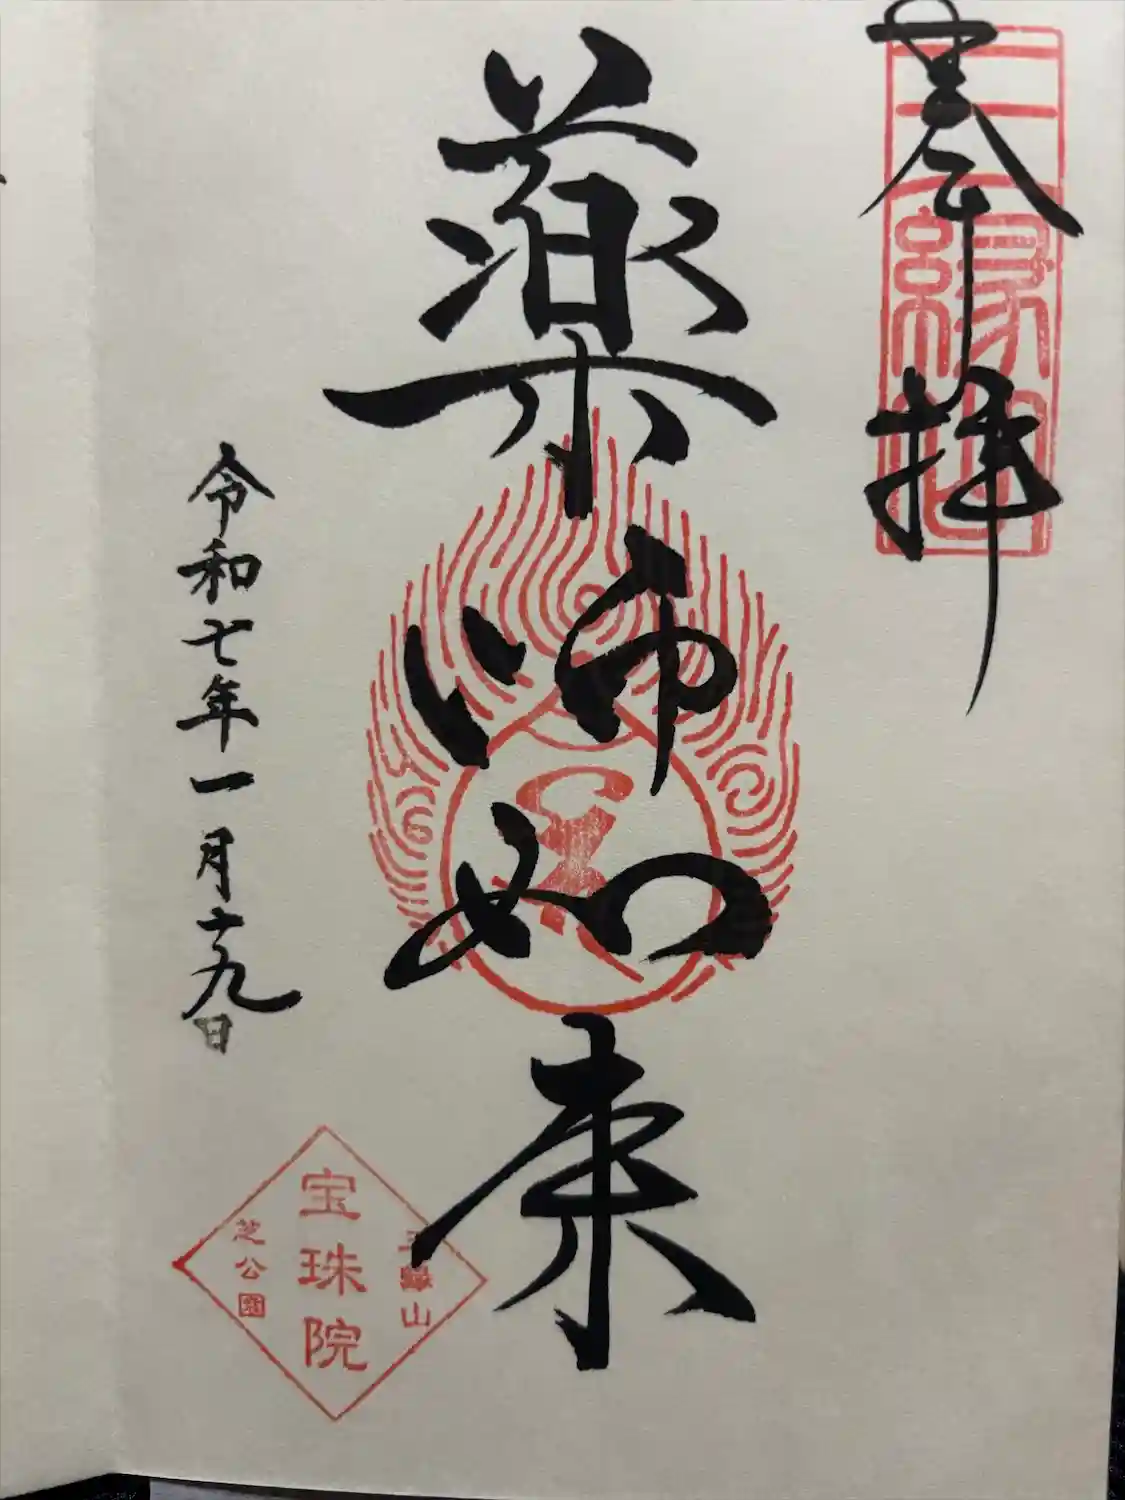 奉拝
三縁山
薬師如来
令和七年一月十九日
三縁山
宝珠院
芝公園